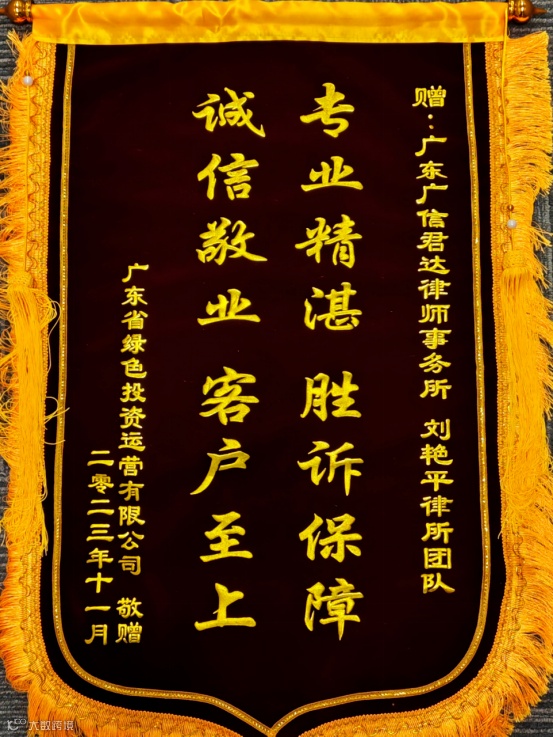 赠：广东广信君达律师事务所 刘艳平律所团队
专业精湛 胜诉保障
诚信敬业 客户至上
广东省绿色投资运营有限公司 敬赠
二零二三年十一月
大数跨境